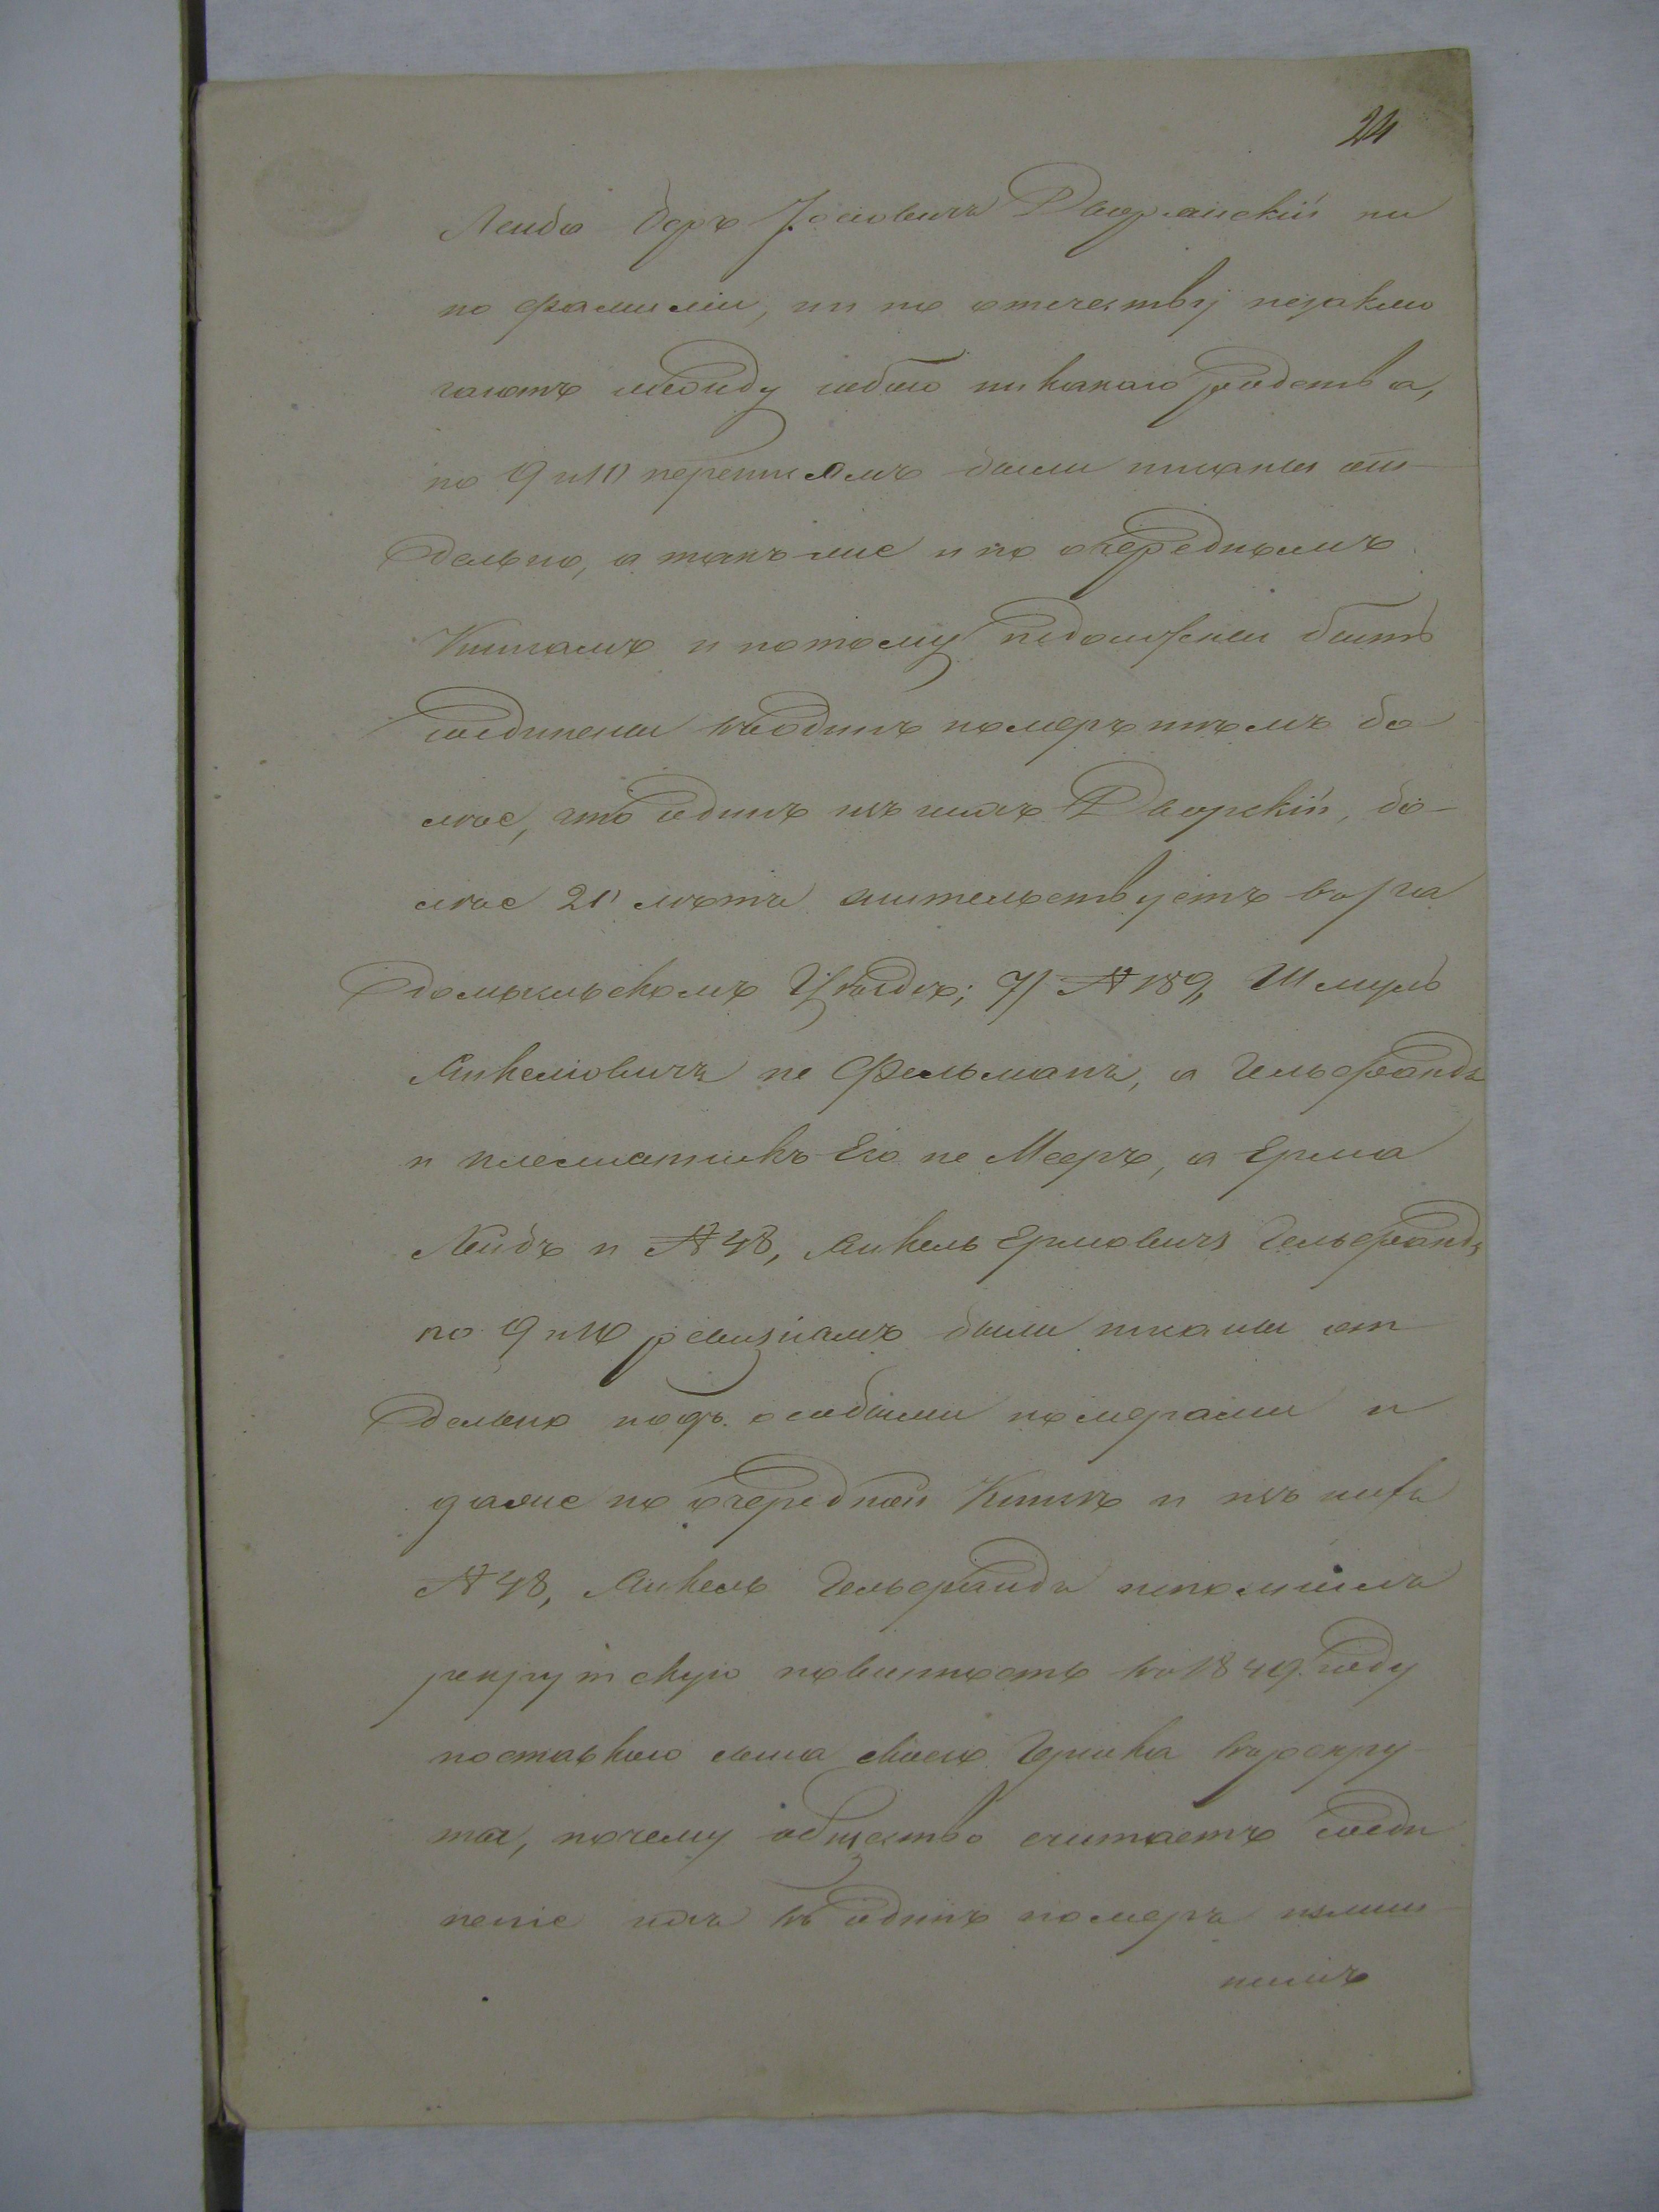 24
Лейба Беръ Іоселовичъ Дворянскій ни
по фамиліи, ни по отечеству незаклю
чаютъ между собою никакаго родства,
по 9 и 10 переписямъ были писаны от-
дельно, а такъ же и по очереднымъ
Книгамъ и потому недолжны быть
соединены въ одинъ номеръ темъ бо
лѣе, что одинъ изъ нихъ Дворскій, бо-
лѣе 20 лѣтъ жительствуетъ въ Ра
домысльскомъ Уѣздѣ; 7/ № 189, Шмуль
Янкелювичъ не Фельманъ, а Гельфандъ
и племянникъ Его не Мееръ, а Ерма
Лейбъ и № 48, Янкель Ермовичъ Гельфандъ,
по 9 и 10 ревизіямъ были писаны от
дельно подъ особыми номерами и
даже по очередной Книгѣ и изъ нихъ
№ 48, Янкель Гельфандъ исполнилъ
рекрутскую повинность въ 1849 году
поставкою сына своего Гершка въ рекру-
ты, почему общество считаетъ соеди
неніе ихъ въ одинъ номеръ излиш-
нимъ